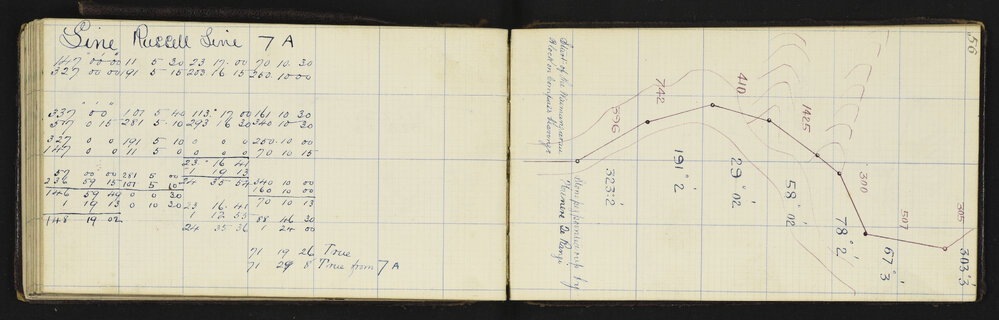 Line Russell Line 7 A
147 00 00 11 5 20 23 17 00 70 10 30
327 00 00 191 5 15 203 16 15 250 10 00
337 00 101 5 40 113° 17 00 161 10 30
0 15 281 5 10 293 16 30 340 10 30
327 0 0 191 5 10 0 0 0 250 10 00
147 0 0 11 5 0 0 0 0 70 10 15
23° 16 41
57 00 00 281 5 00 1 19 13
236 59 15 101 5 10 24 35 54 340 10 00
160 10 00
146 59 49 0 0 30 70 10 13
1 19 13 0 10 30 23 16 41
1 12 55 88 46 30
148 19 02 24 35 36 1 24 00
71 19 26 True
71 29 8 True from 7 A
56
Start of the
Block on compass
396
742
410
1425
300
507
305
323° 2'
191° 2'
29° 02'
58° 02'
78° 2'
67° 3
303° 3'